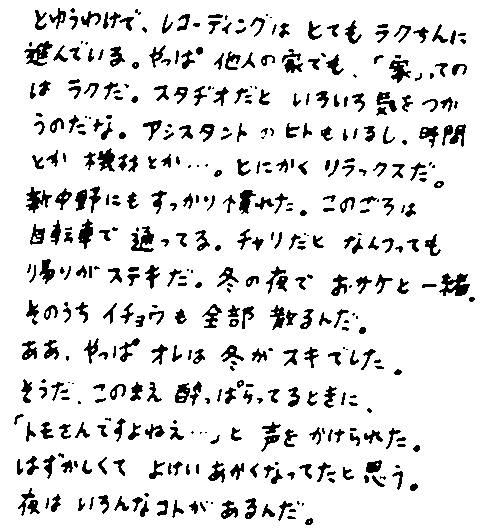 とゆうわけで、レコーディングは とても ラクちんに
進んでいる。やっぱ 他人の家でも、「家」っての
は ラクだ。スタヂオだと いろいろ 気をつか
うのだな。アシスタントのヒトもいるし、時間
とか 機材とか…。とにかく リラックスだ。
新中野にも すっかり慣れた。このごろは
自転車で 通ってる。チャリだと なんつっても
帰りがステキだ。冬の夜で おサケと一緒。
そのうちイチョウも 全部 散るんだ。
ああ、やっぱ オレは 冬が スキでした。
そうだ、このまえ 酔っぱらってるときに、
「トモさんですよねえ…」と 声を かけられた。
はずかしくて よけい あかくなってたと思う。
夜は いろんなコトが あるんだ。